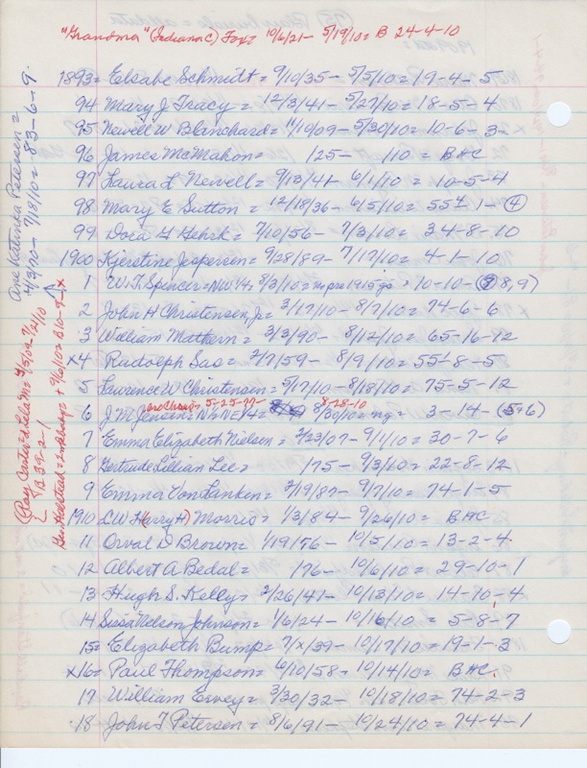 "Grandma" (Indiana C) Fox = 10/6/21 - 5/19/10 = B 24-4-10
1893 = Elsabe Schmidt = 9/10/35 - 5/5/10 = 19-4-5
94 Mary J Tracy = 12/3/41 - 5/27/10 = 18-5-4
95 Newell W Blanchard = 11/19/09 - 5/30/10 = 10-6-3
96 James McMahon = 125 - 110 = BHC
97 Laura L Newell = 9/13/41 - 6/1/10 = 10-5-4
98 Mary E Sutton = 12/18/36 - 6/5/10 = 55 1-(4)
99 Dora G Gehrk = 7/10/56 - 7/3/10 = 34-8-10
1900 Kjerstine Jesperson = 9/28/89 - 7/17/10 = 4-1-10
1 W.T. Spencer = NW 1/4, 8/3/10 = 10-10-(7, 8, 9)
2 John H Christensen, Jr = 3/17/10 - 8/7/10 = 74-6-6
3 William Mattern = 3/3/90 - 8/12/10 = 65-16-12
x4 Rudolph Sas = 2/7/59 - 8/9/10 = 55-8-5
5 Lawrence W Christensen = 5/17/10 - 8/18/10 = 75-5-12
5-25-77- 8-28-10
6 J.W. Jensen = N 1/2 NE 1/4 = 8/30/10 = ng = 3-14-(5+6)
7 Emma Elizabeth Nielsen = 2/23/07 - 9/1/10 = 30-7-6
8 Gertrude Lillian Lee = 175 - 9/3/10 = 22-8-12
9 Emma VonTanken = 2/19/87 - 9/7/10 = 74-1-5
1910 LW (Harry H) Morris = 1/3/84 - 9/26/10 = BHC
11 Orval D Brown = 1/19/76 - 10/5/10 = 13-2-4
12 Albert A Bedal = 176 - 10/6/10 = 29-10-1
13 Hugh S. Kelly = 2/26/41 - 10/13/10 = 14-70-4
14 Sissa Nelson Johnson = 1/6/24 - 10/16/10 = 5-8-7
15 = Elizabeth Bump = 7/x/39 - 10/17/10 = 19-1-3
x16 = Paul Thompson = 6/10/58 - 10/14/10 = BHC
17 William Esvey = 3/30/32 - 10/18/10 = 74-2-3
18 John T Petersen = 8/6/91 - 10/24/10 = 74-4-1
Ane Katinka Petersen =
4/3/70 - 7/18/10 = 83-6-9